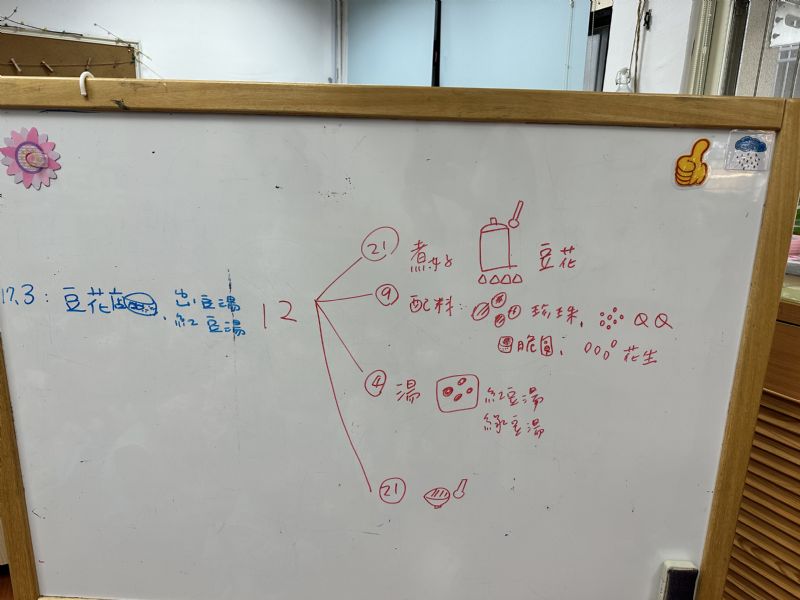 17.3：豆花店
豆湯
紅豆湯
12
21 煮好 豆花
9 配料： 珍珠、 QQ
脆圓、 花生
4 湯 紅豆湯
綠豆湯
21